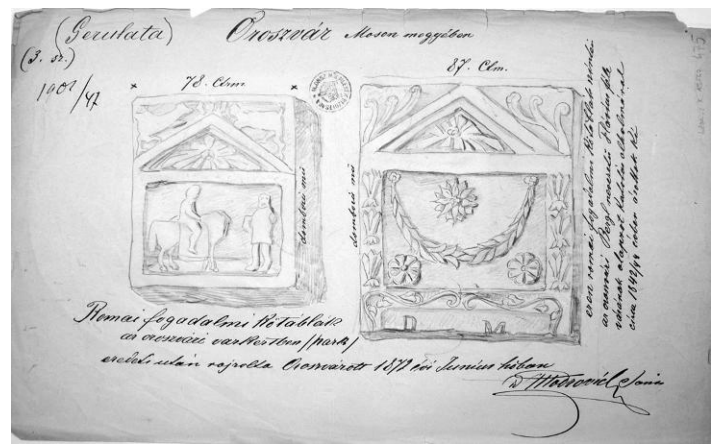 (Gerulata) Oroszvár Moson megyében
(3. sz.)
1901/47
78. Ctm.
87. Ctm.
dombormű
dombormű
ezen római fogadalmi kőtáblát szintén
az oroszvári Bergl nevezetű Flavius féle
várának alapzat ásatási alkalmával
circa 1842/44 évben ásatták ki
D M
Romai fogadalmi kőtáblák
az oroszvári várkertben /park/
eredeti után rajzolta Oroszvárott 1872 évi Junius hóban